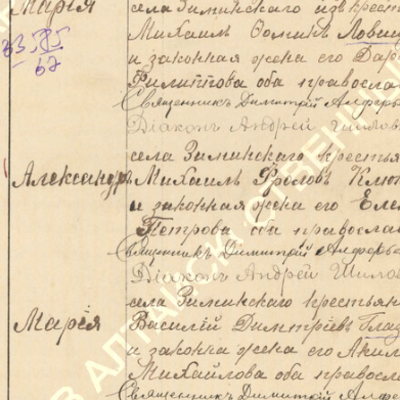 Марія
села Зиминскаго изъ крестья
Михаилъ Фоминъ
и законная жена его Дар
Филиппова оба правосла
Священникъ Димитрій Алферо
Діаконъ Андрей Шилов
села Зиминскаго крестья
Александръ
Михаилъ Фроловъ
и законная жена его Еле
Петрова оба православ
Священникъ Димитрій Алферо
Діаконъ Андрей Шилов
села Зиминскаго крестьян
Марія
Василій Димитріевъ Глаз
и законна жена его Акил
Михайлова оба правосл
Священникъ Димитрій Алфе